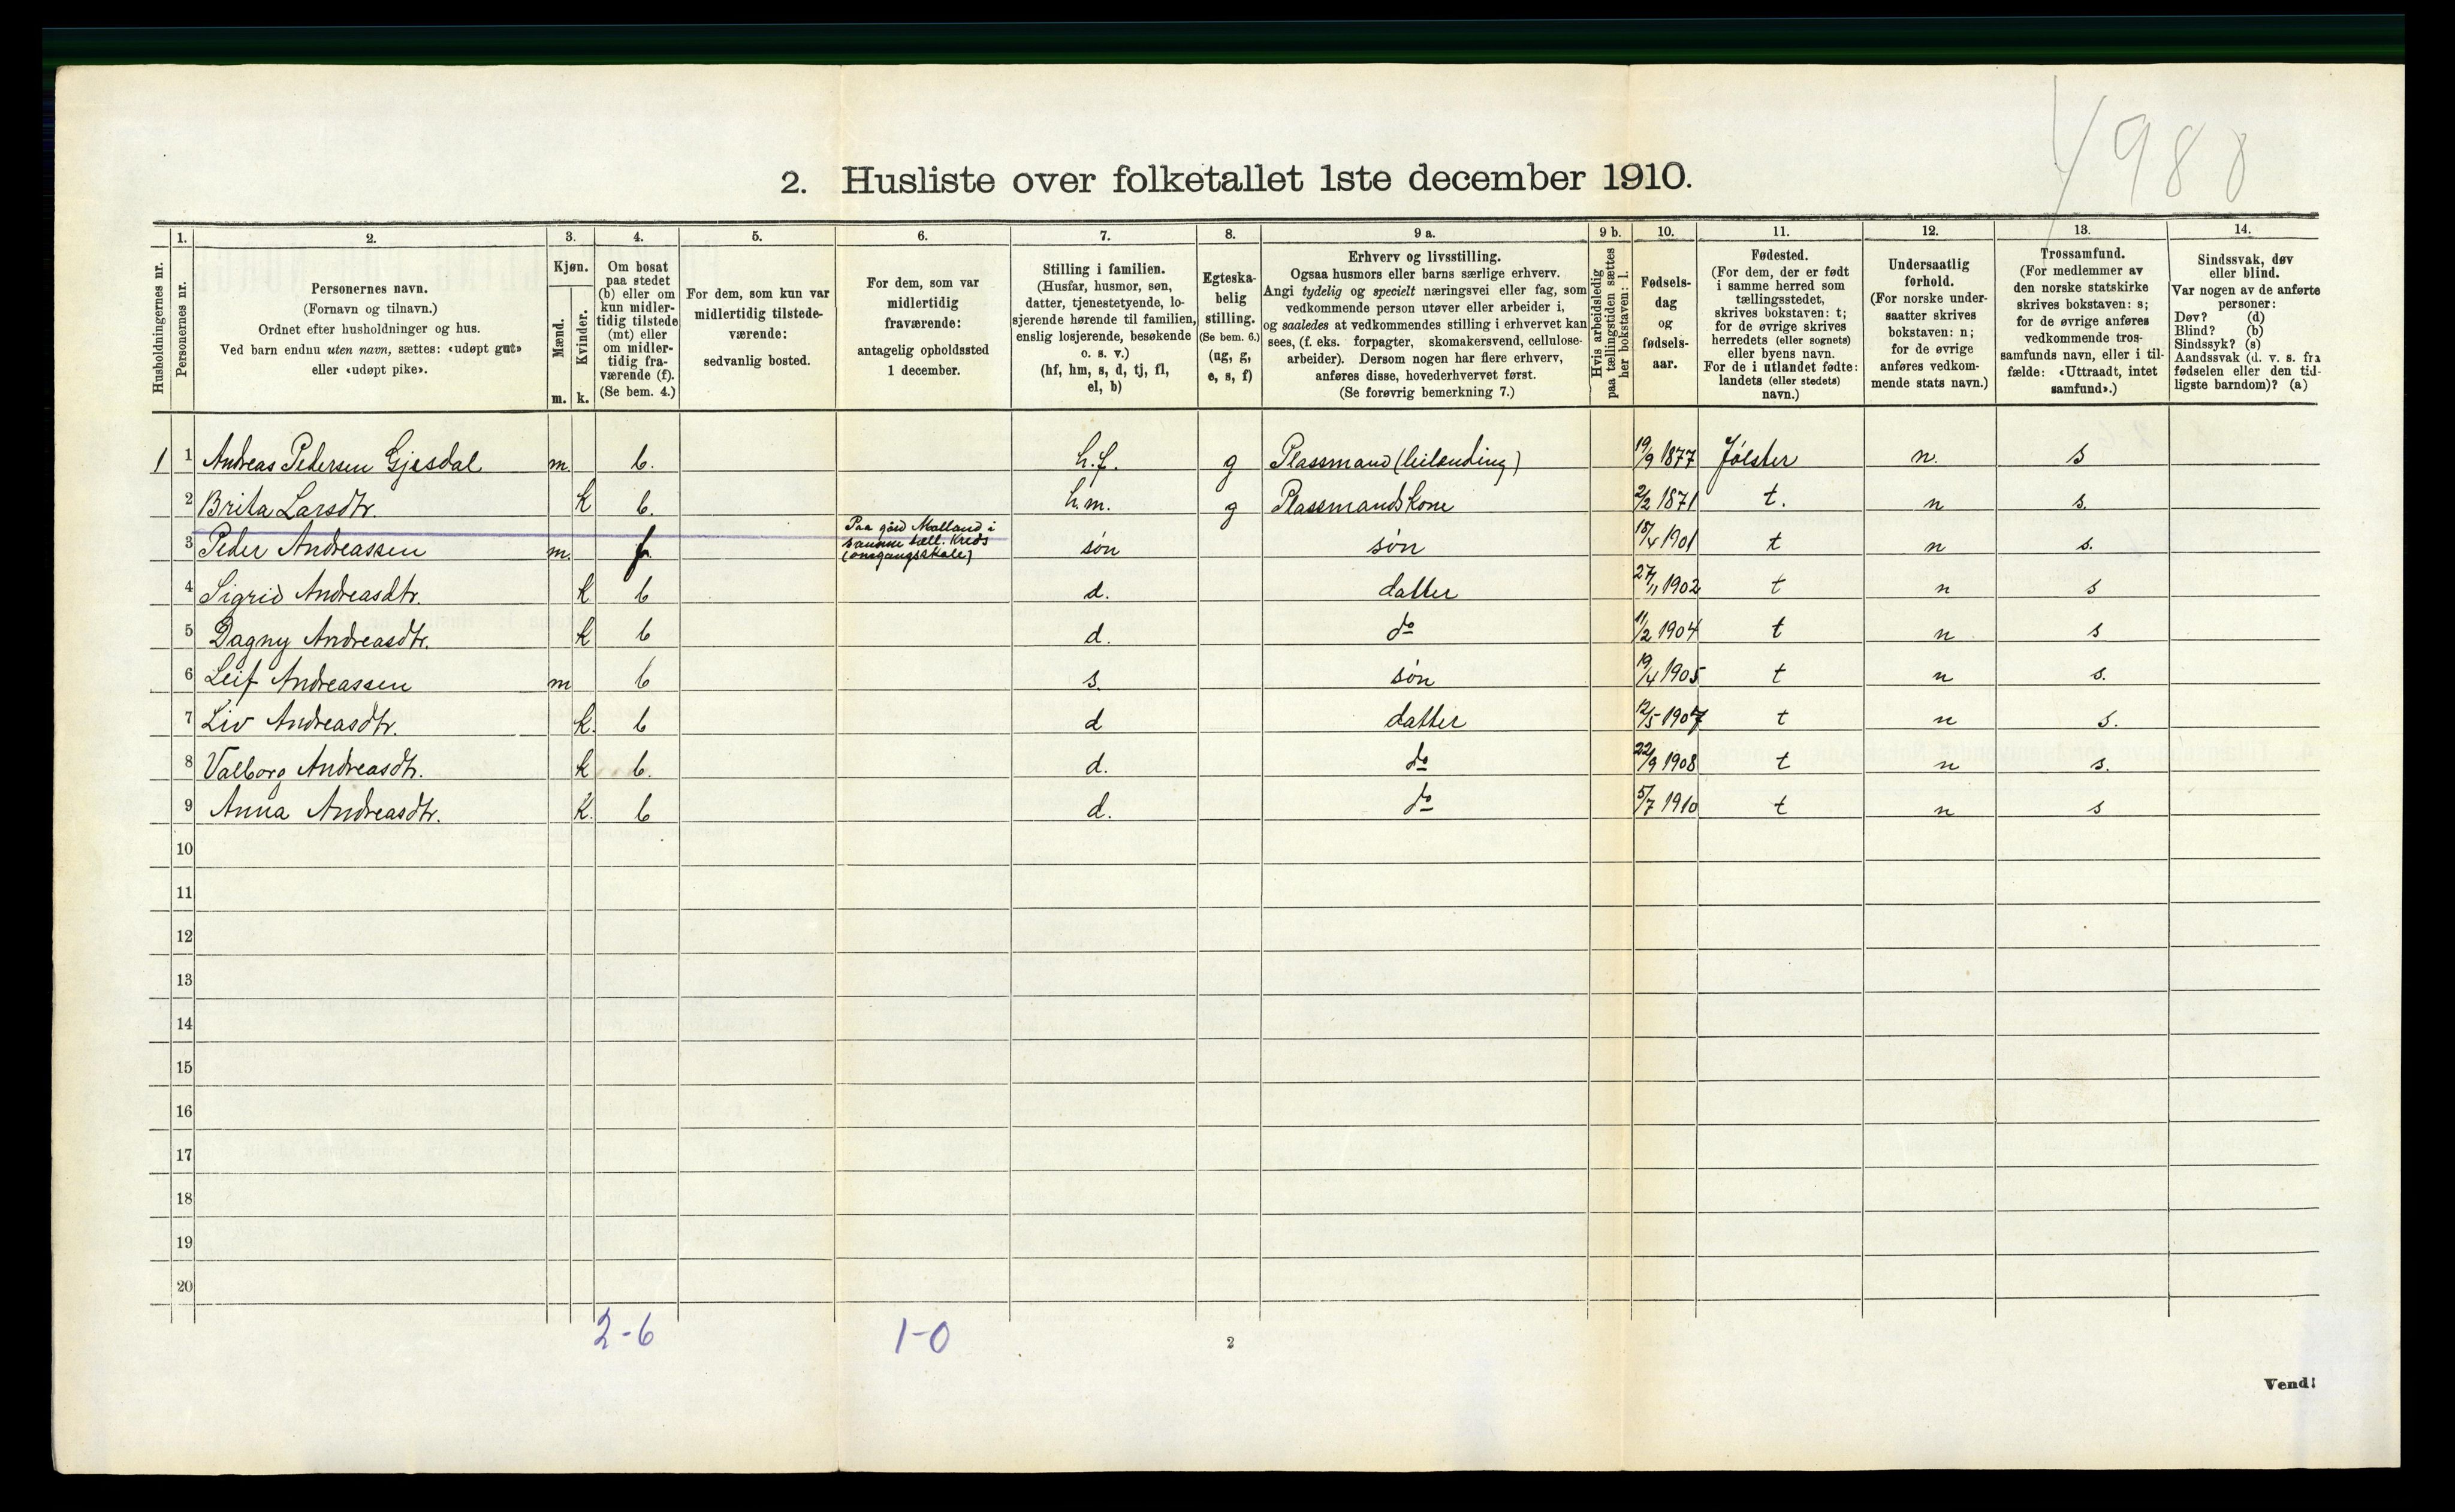 4988
2. Husliste over folketallet 1ste december 1910.
Husholdningernes nr.
1.
Personernes nr.
2.
Personernes navn.
(Fornavn og tilnavn.)
Ordnet efter husholdninger og hus.
Ved barn endnu uten navn, sættes: «udøpt gut»
eller «udøpt pike».
3.
Kjøn.
Mænd.
Kvinder.
m. k.
4.
Om bosat
paa stedet
(b) eller om
kun midler-
tidig tilstede
(mt) eller
om midler-
tidig fra-
værende (f).
(Se bem. 4.)
5.
For dem, som kun var
midlertidig tilstede-
værende:
sedvanlig bosted.
6.
For dem, som var
midlertidig
fraværende:
antagelig opholdssted
1 december.
7.
Stilling i familien.
(Husfar, husmor, søn,
datter, tjenestetyende, lo-
sjerende hørende til familien,
enslig losjerende, besøkende
o. s. v.)
(hf, hm, s, d, tj, fl,
el, b)
8.
Egteska-
belig
stilling.
(Se bem. 6.)
(ug, g,
e, s, f)
9 a.
Erhverv og livsstilling.
Ogsaa husmors eller barns særlige erhverv.
Angi tydelig og specielt næringsvei eller fag, som
vedkommende person utøver eller arbeider i,
og saaledes at vedkommendes stilling i erhvervet kan
sees, (f. eks. forpagter, skomakersvend, cellulose-
arbeider). Dersom nogen har flere erhverv,
anføres disse, hovederhvervet først.
(Se forøvrig bemerkning 7.)
9 b.
Hvis arbeidsledig
paa tællingstiden sættes
her bokstaven: l.
10.
Fødsels-
dag
og
fødsels-
aar.
11.
Fødested.
(For dem, der er født
i samme herred som
tællingsstedet,
skrives bokstaven: t;
for de øvrige skrives
herredets (eller sognets)
eller byens navn.
For de i utlandet fødte:
landets (eller stedets)
navn.)
12.
Undersaatlig
forhold.
(For norske under-
saatter skrives
bokstaven: n;
for de øvrige
anføres vedkom-
mende stats navn.)
13.
Trossamfund.
(For medlemmer av
den norske statskirke
skrives bokstaven: s;
for de øvrige anføres
vedkommende tros-
samfunds navn, eller i til-
fælde: «Uttraadt, intet
samfund».)
14.
Sindssvak, døv
eller blind.
Var nogen av de anførte
personer:
Døv? (d)
Blind? (b)
Sindssyk? (s)
Aandssvak (d. v. s. fra
fødselen eller den tid-
ligste barndom)? (a)
1 1 Andreas Pedersen Gjesdal m. b. h.f. g Plassmand (leilending) 19/9 1877 Jølster n. s
2 Brita Larsdtr. k b. h.m. g Plassmandskone 2/2 1871 t. n s.
3 Peder Andreassen m. f. Paa gård Malland i
samme tæll. Kreds
(omgangsskole) søn søn 15/4 1901 t n s.
4 Sigrid Andreasdtr. k b d. datter 27/11 1902 t n s
5 Dagny Andreasdtr. k b d. do 11/2 1904 t n s
6 Leif Andreassen m b s. søn 19/4 1905 t n s.
7 Liv Andreasdtr. k. b d datter 12/5 1907 t n s.
8 Valborg Andreasdtr. k b. d. do 22/9 1908 t n s.
9 Anna Andreasdtr. k. b d. do 5/7 1910 t n s
10
11
12
13
14
15
16
17
18
19
20
2-6 1-0
2
Vend!